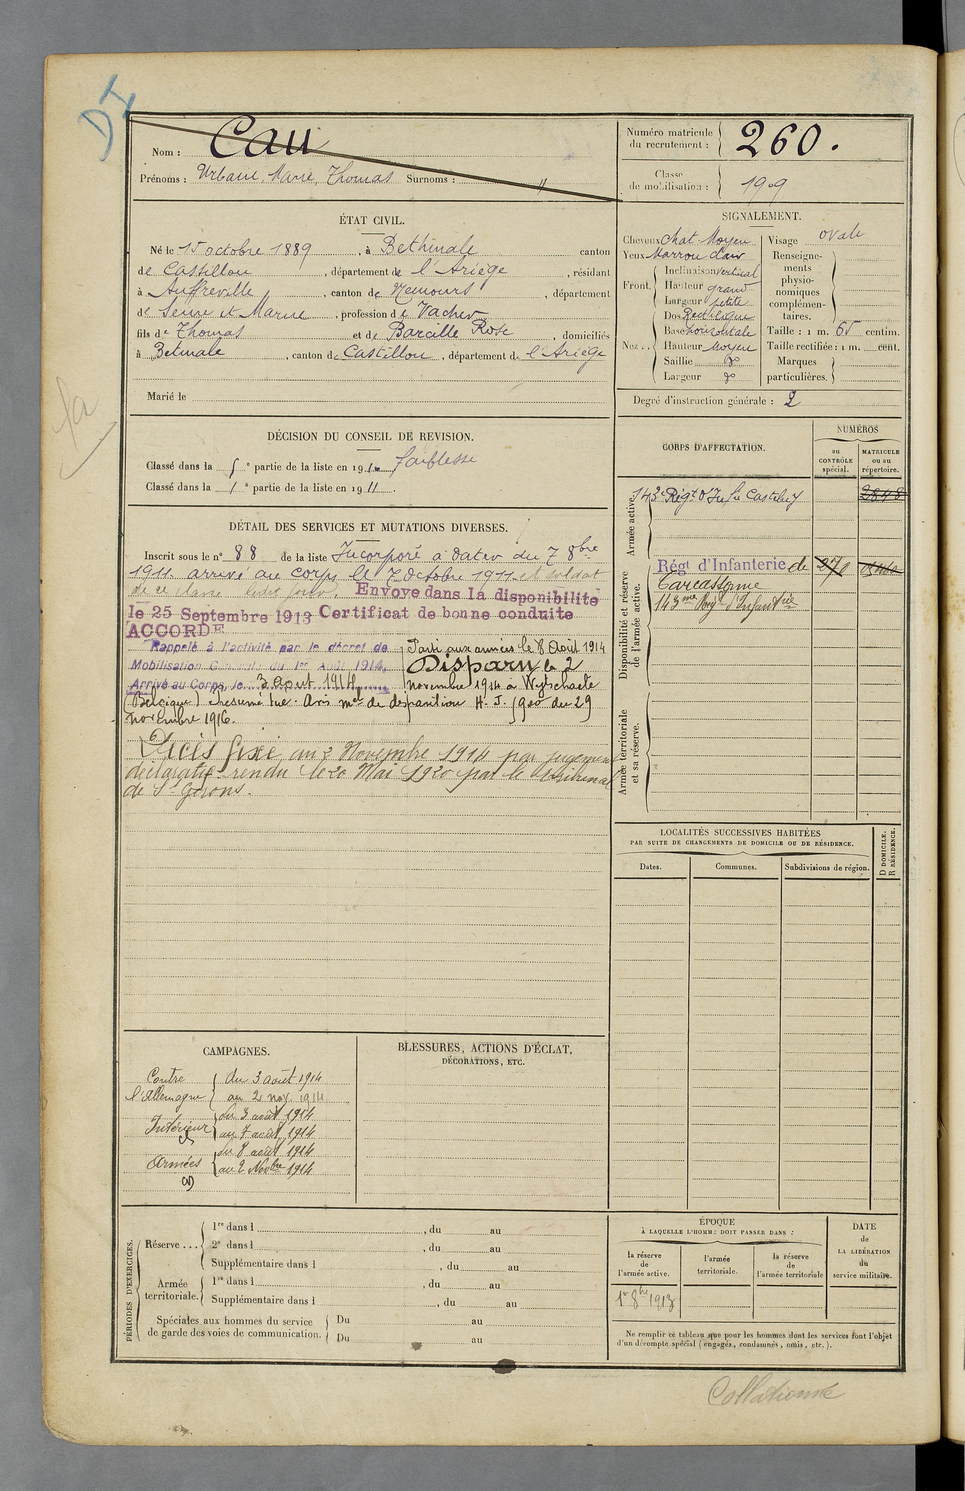 DI
Nom : Cau
Prénoms : Urbain, Marie, Thomas Surnoms : "
Numéro matricule du recrutement : 260.
Classe de mobilisation : 1909
ÉTAT CIVIL.
Né le 15 octobre 1889, à Bethmale canton
de Castillon, département de l'Ariège, résidant
à Auffreville, canton de Nemours, département
de Seine et Marne, profession de Vacher
fils de Thomas et de Barcille Rose, domiciliés
à Betmale, canton de Castillon, département de l'Ariège
Marié le
SIGNALEMENT.
Cheveux chat. Moyen
Yeux Marron clair
Front. Inclinaison vertical
Hauteur grand
Largeur petite
Nez.. Dos Rectiligne
Base horizontale
Hauteur Moyen
Saillie do
Largeur do
Visage ovale
Renseignements physionomiques complémentaires.
Taille : 1 m. 65 centim.
Taille rectifiée : 1 m. cent.
Marques particulières.
Degré d'instruction générale : 2
DÉCISION DU CONSEIL DE REVISION.
Classé dans la 5e partie de la liste en 1910 faiblesse
Classé dans la 1e partie de la liste en 1911.
CORPS D'AFFECTATION.
NUMÉROS
au CONTRÔLE spécial.
MATRICULE ou au répertoire.
Armée active.
143e Régt d'Inf. de Castelnry
Disponibilité et réserve de l'armée active.
Régt d'Infanterie de
Carcassonne
143me Rég. d'Infantrie
Armée territoriale et sa réserve.
DÉTAIL DES SERVICES ET MUTATIONS DIVERSES.
Inscrit sous le n° 88 de la liste Incorporé à dater du 7 8bre
1911. arrivé au corps le 7 Octobre 1911 et soldat
de 2e classe ledit jour. Envoyé dans la disponibilité
le 25 Septembre 1913 Certificat de bonne conduite
ACCORDÉ
Rappelé à l'activité par le décret de
Mobilisation Générale du 1er Août 1914.
Arrivé au Corps, le 3 août 1914
Parti aux armées le 8 Août 1914
Disparu le 2
novembre 1914 à Wytschaete
(Belgique) Présumé tué. Avis mel de disparition H. J. 900 du 29
novembre 1916.
Décès fixé au 2 Novembre 1914 par jugement
déclaratif rendu le 20 Mai 1920 par le Tribunal
de St Girons.
LOCALITÉS SUCCESSIVES HABITÉES
PAR SUITE DE CHANGEMENTS DE DOMICILE OU DE RÉSIDENCE.
Dates.
Communes.
Subdivisions de région.
D DOMICILE.
R RÉSIDENCE.
CAMPAGNES.
Contre l'Allemagne du 3 août 1914
au 2 nov. 1914
Intérieur du 3 août 1914
au 7 août 1914
Armées du 8 août 1914
au 2 Novbre 1914
BLESSURES, ACTIONS D'ÉCLAT,
DÉCORATIONS, ETC.
PÉRIODES D'EXERCICES.
Réserve ... 1re dans l , du au
2e dans l , du au
Supplémentaire dans l , du au
Armée territoriale. 1re dans l , du au
Supplémentaire dans l , du au
Spéciales aux hommes du service de garde des voies de communication. Du au
Du au
ÉPOQUE
À LAQUELLE L'HOMME DOIT PASSER DANS :
la réserve de l'armée active.
l'armée territoriale.
la réserve de l'armée territoriale
DATE de LA LIBÉRATION du service militaire.
1er 8bre 1913
Ne remplir ce tableau que pour les hommes dont les services font l'objet
d'un décompte spécial (engagés, condamnés, omis, etc.).
Collationné